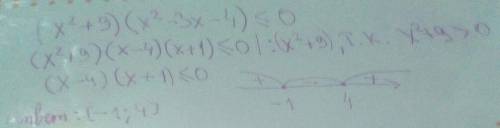 (x²+9)(x²-3x-4)≤0
(x²+9)(x-4)(x+1)≤0 | :(x²+9), т.к. x²+9>0
(x-4)(x+1)≤0
+ - +
-1 4
твет: [-1; 4]